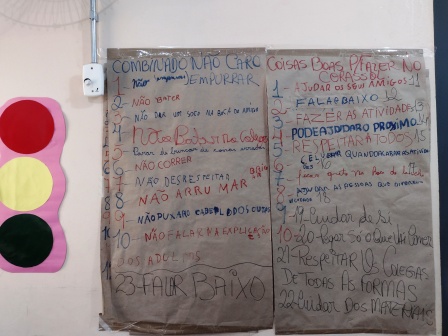 COMBINADO NÃO CARO
1- Não EMPURRAR
2- NÃO BATER
3- NÃO DAR UM SOCO NA BOCA DO AMIGO
4-
5- Parar de
6- NÃO CORRER
7- NÃO DESRESPEITAR
8- NÃO ARRUMAR
9- NÃO PUXAR O CABELO DOS OUTROS
10- NÃO FALAR NA EXPLICAÇÃO
DOS ADULTOS
23-FALAR BAIXO
COISAS BOAS PRAZER NO
CORASSOL
1- AJUDAR OS SEUS AMIGOS 11
2- FALAR BAIXO 12
3- FAZER AS ATIVIDADES 13
4- PODE AJUDAR O PROXIMO 14
5- RESPEITAR A TODOS 15
6- QUANDO ACABAR AS ATIVIDA
DES 16
7-
8- AJUDAR AS PESSOAS QUE
18
9-19-Cuidar de si
10-20-Pegar só o que
21-Respeitar os Colegas
DE TODAS AS FORMAS
22-Cuidar DOS MATERIAIS